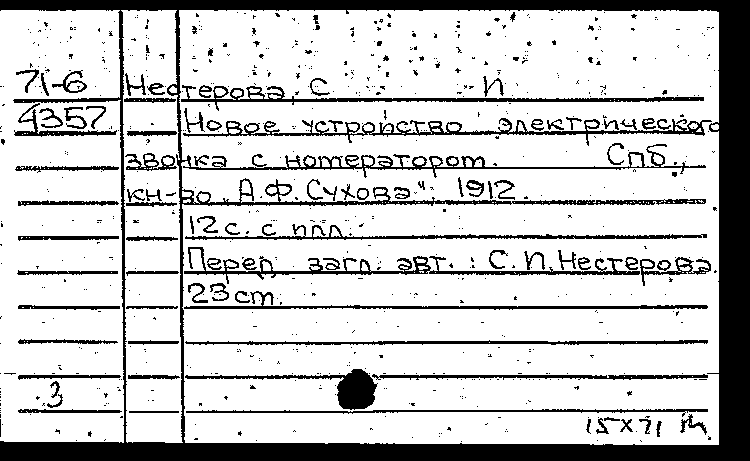 71-6 Нестерова, С И
4357 Новое устройство электрического
звонка с номератором. Спб.,
кн-во „А.Ф.Сухова", 1912.
12 с. с илл.
Перед загл. авт.: С.И.Нестерова.
23 cm.
3
15 X 71